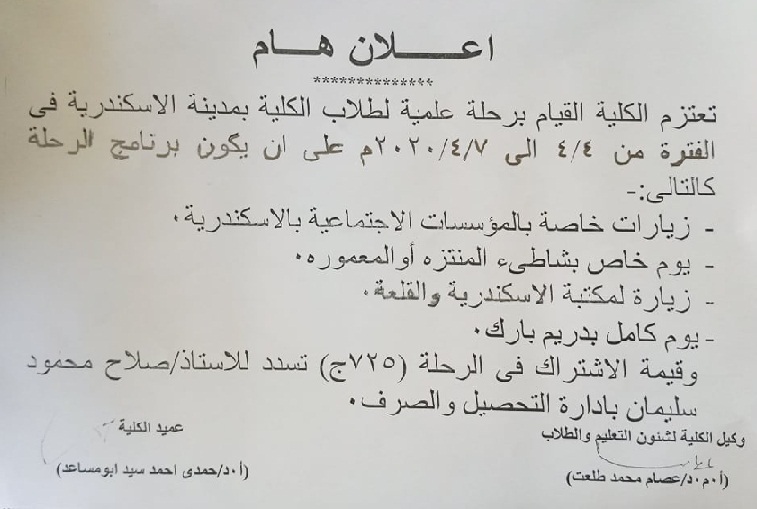 اعلان هام
**************
تعتزم الكلية القيام برحلة علمية لطلاب الكلية بمدينة الاسكندرية فى
الفترة من ٤/٤ الى ٢٠٢٠/٤/٧م على ان يكون برنامج الرحلة
كالتالى:-
- زيارات خاصة بالمؤسسات الاجتماعية بالاسكندرية.
- يوم خاص بشاطىء المنتزه أوالمعموره.
- زيارة لمكتبة الاسكندرية والقلعة.
- يوم كامل بدريم بارك.
وقيمة الاشتراك فى الرحلة (٧٢٥ج) تسدد للاستاذ/صلاح محمود
سليمان بادارة التحصيل والصرف.
وكيل الكلية لشئون التعليم والطلاب
(أ.م.د/عصام محمد طلعت)
عميد الكلية
(أ.د/حمدى احمد سيد ابومساعد)